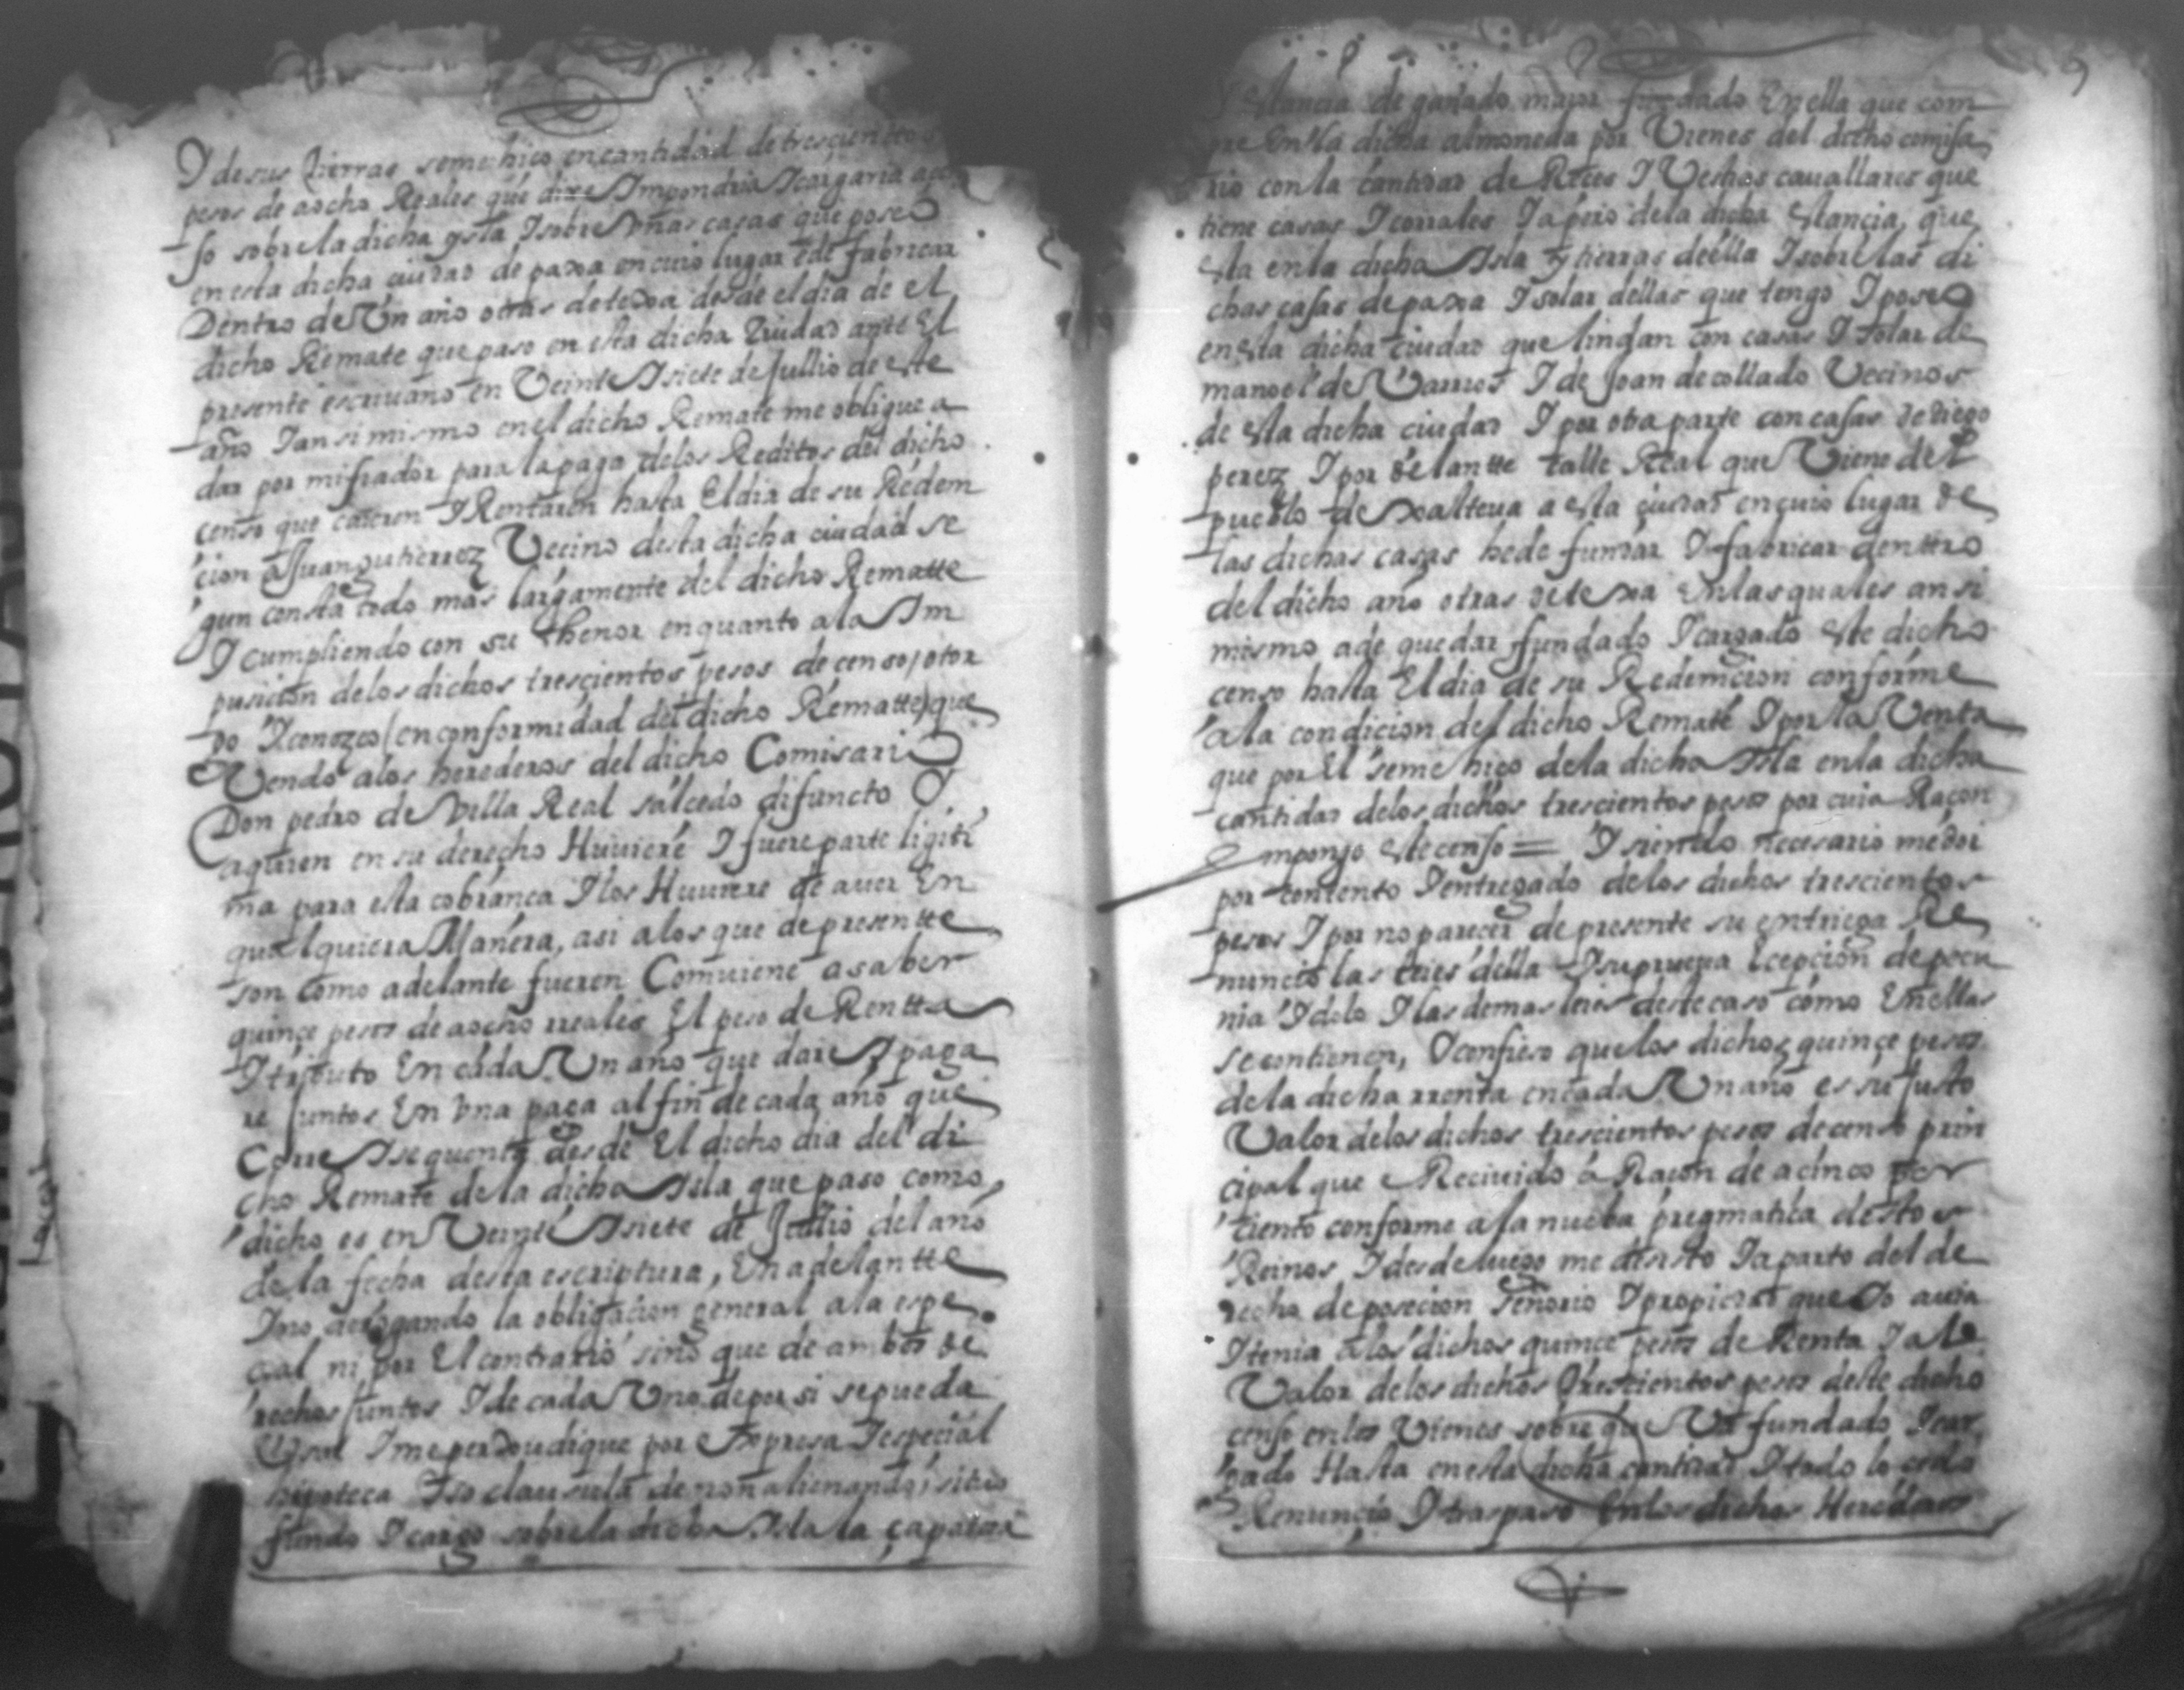 I de sus tierras se me hiço en cantidad de tresçientos
pesos de a ocho Reales que dixe Impondria I cargaria a çen
so sobre la dicha ysla I sobre Vnas casas que poseo
en esta dicha ciudad de paxa en cuio lugar e de fabricar
Dentro de Vn año otras de texa desde el dia de el
dicho Remate que paso en esta dicha Ciudad ante El
presente escriuano en Veinte I siete de Jullio de este
año I ansi mismo en el dicho Remate me oblique a
dar por mi fiador para la paga de los Reditos del dicho
censo que caieren I Rentaren hasta El dia de su Redem
cion a Juan gutierrez Vecino desta dicha ciudad se
gun consta todo mas largamente del dicho Rematte
I cumpliendo con su thenor en quanto a la Im
pusicion de los dichos tresçientos pesos de censo, otor
go I conozco (en conformidad del dicho Rematte) que
Vendo a los herederos del dicho Comisario
Don pedro de Villa Real salcedo difuncto I
a quien en su derecho Huuiere I fuere parte ligiti
ma para esta cobranca I los Huuiere de auer En
qualquiera Manera, asi a los que de presentte
son como adelante fueren Comuiene a saber
quinçe pesos de a ocho rreales El peso de Rentta
I tributo En cada Vn año que dare I paga
re Juntos En Vna paga al fin de cada año que
Corre I se quenta desde El dicho dia del di
cho Remate de la dicha Isla que paso como
dicho es en Veinte I siete de Jullio del año
de la fecha desta escriptura, En adelantte
I no derogando la obligacion general a la espe
cial ni por El contrario sino que de ambos de
rechos Juntos I de cada Vno de por si se pueda
Vsar I me perxoudique por Expresa I especial
hipoteca I so clausula de non alienando, sitio
fundo I cargo sobre la dicha Isla la çapatera
I Estancia de ganado maior fundado En ella que com
pre En la dicha almoneda por Vienes del dicho comisa
rio con la cantidad de Reces I Vestias cauallares que
tiene casas I corrales I apero de la dicha Estancia, que
Esta en la dicha Isla y tierras de ella I sobre las di
chas casas de paxa I solar dellas que tengo I poseo
en Esta dicha ciudad que lindan con casas I solar de
manoel de Varrios I de Joan de collado Vecinos
de Esta dicha ciudad I por otra parte con casas de diego
perez I por delantte calle Real que Viene del
pueblo de Xalteua a Esta ciudad en cuio lugar de
las dichas casas he de fundar I fabricar denttro
del dicho año otras de texa En las quales ansi
mismo a de quedar fundado I cargado Este dicho
censo hasta El dia de su Redemcion conforme
a la condicion del dicho Remate I por la Venta
que por El se me hiço de la dicha Isla en la dicha
cantidad de los dichos trescientos pesos por cuia Raçon
Impongo Este censo = I siendo necesario me doi
por contento I entregado de los dichos trescientos
pesos I por no parecer de presente su entriega Re
nuncio las leies della I su prueua Ecepcion de pecu
nia I dolo I las demas leies deste caso como En ellas
se contienen, I confieso que los dichos quinçe pesos
de la dicha rrenta en cada Vn año es su Justo
Valor de los dichos trescientos pesos de censo prin
cipal que e Reciuido a Raçon de a cinco por
ciento conforme a la nueba pregmatica destos
Reinos I desde luego me desisto I aparto del de
recho de posecion señorio I propiedad que Io auia
I tenia a los dichos quinçe pesos de Renta I al
Valor de los dichos trescientos pesos deste dicho
censo en los Vienes sobre que Va fundado I car
gado Hasta en esta dicha cantidad I todo lo cedo
Renuncio I traspaso En los dichos Herederos